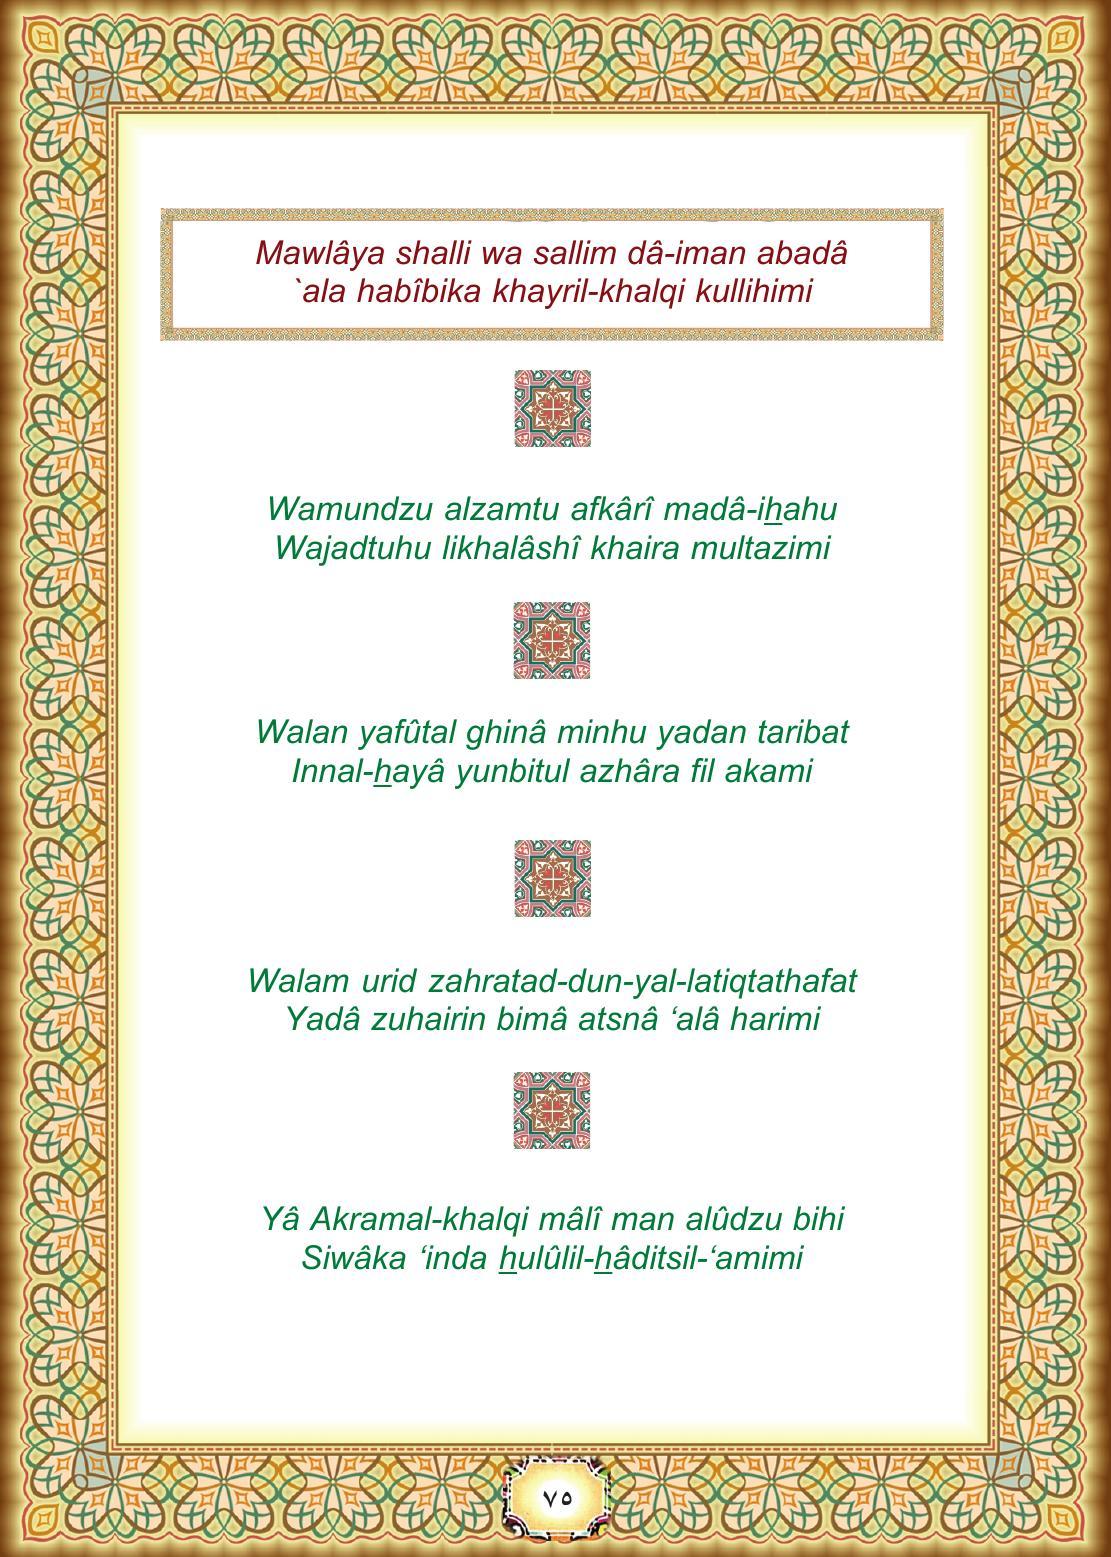 Mawlâya shalli wa sallim dâ-iman abadâ
`ala habîbika khayril-khalqi kullihimi
Wamundzu alzamtu afkârî madâ-iẖahu
Wajadtuhu likhalâshî khaira multazimi
Walan yafûtal ghinâ minhu yadan taribat
Innal-ẖayâ yunbitul azhâra fil akami
Walam urid zahratad-dun-yal-latiqtathafat
Yadâ zuhairin bimâ atsnâ ‘alâ harimi
Yâ Akramal-khalqi mâlî man alûdzu bihi
Siwâka ‘inda ẖulûlil-ẖâditsil-‘amimi
٧٥